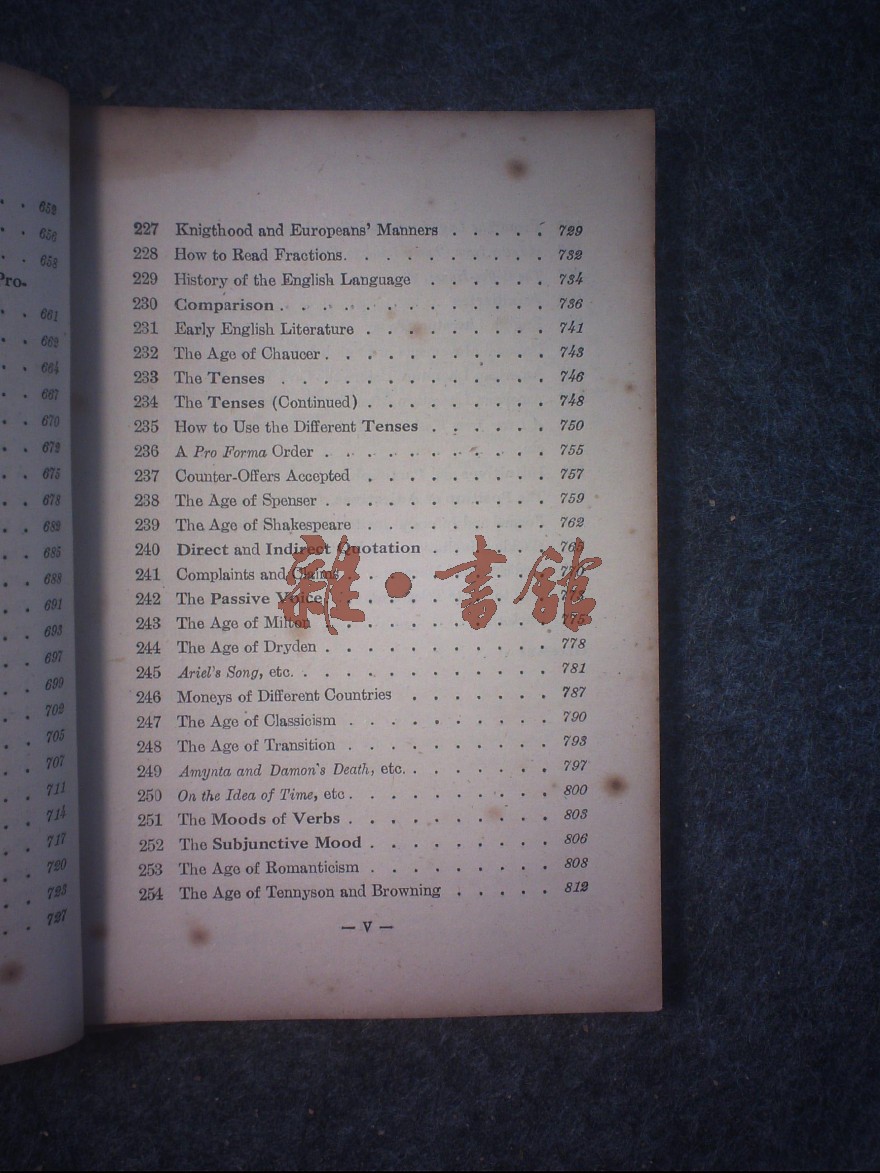 652
656
658
Pro-
661
662
664
667
670
672
675
678
682
685
688
691
693
697
699
702
705
707
711
714
717
720
723
727
227 Knigthood and Europeans' Manners . . . . . 729
228 How to Read Fractions. . . . . . . . . 732
229 History of the English Language . . . . . . 734
230 Comparison . . . . . . . . . . . . 736
231 Early English Literature . . . . . . . . . 741
232 The Age of Chaucer . . . . . . . . . . 743
233 The Tenses . . . . . . . . . . . . 746
234 The Tenses (Continued) . . . . . . . . . 748
235 How to Use the Different Tenses . . . . . . 750
236 A Pro Forma Order . . . . . . . . . . 755
237 Counter-Offers Accepted . . . . . . . . . 757
238 The Age of Spenser . . . . . . . . . . 759
239 The Age of Shakespeare . . . . . . . . . 762
240 Direct and Indirect Quotation . . . . . .
241 Complaints and Claims . . . . . . . . .
242 The Passive Voice . . . . . . . . . .
243 The Age of Milton . . . . . . . . . . 775
244 The Age of Dryden . . . . . . . . . . 778
245 Ariel's Song, etc. . . . . . . . . . . . 781
246 Moneys of Different Countries . . . . . . . 787
247 The Age of Classicism . . . . . . . . . 790
248 The Age of Transition . . . . . . . . . 793
249 Amynta and Damon's Death, etc. . . . . . . . 797
250 On the Idea of Time, etc . . . . . . . . . 800
251 The Moods of Verbs . . . . . . . . . 803
252 The Subjunctive Mood . . . . . . . . . 806
253 The Age of Romanticism . . . . . . . . 808
254 The Age of Tennyson and Browning . . . . . 812
— V —
雜·書館